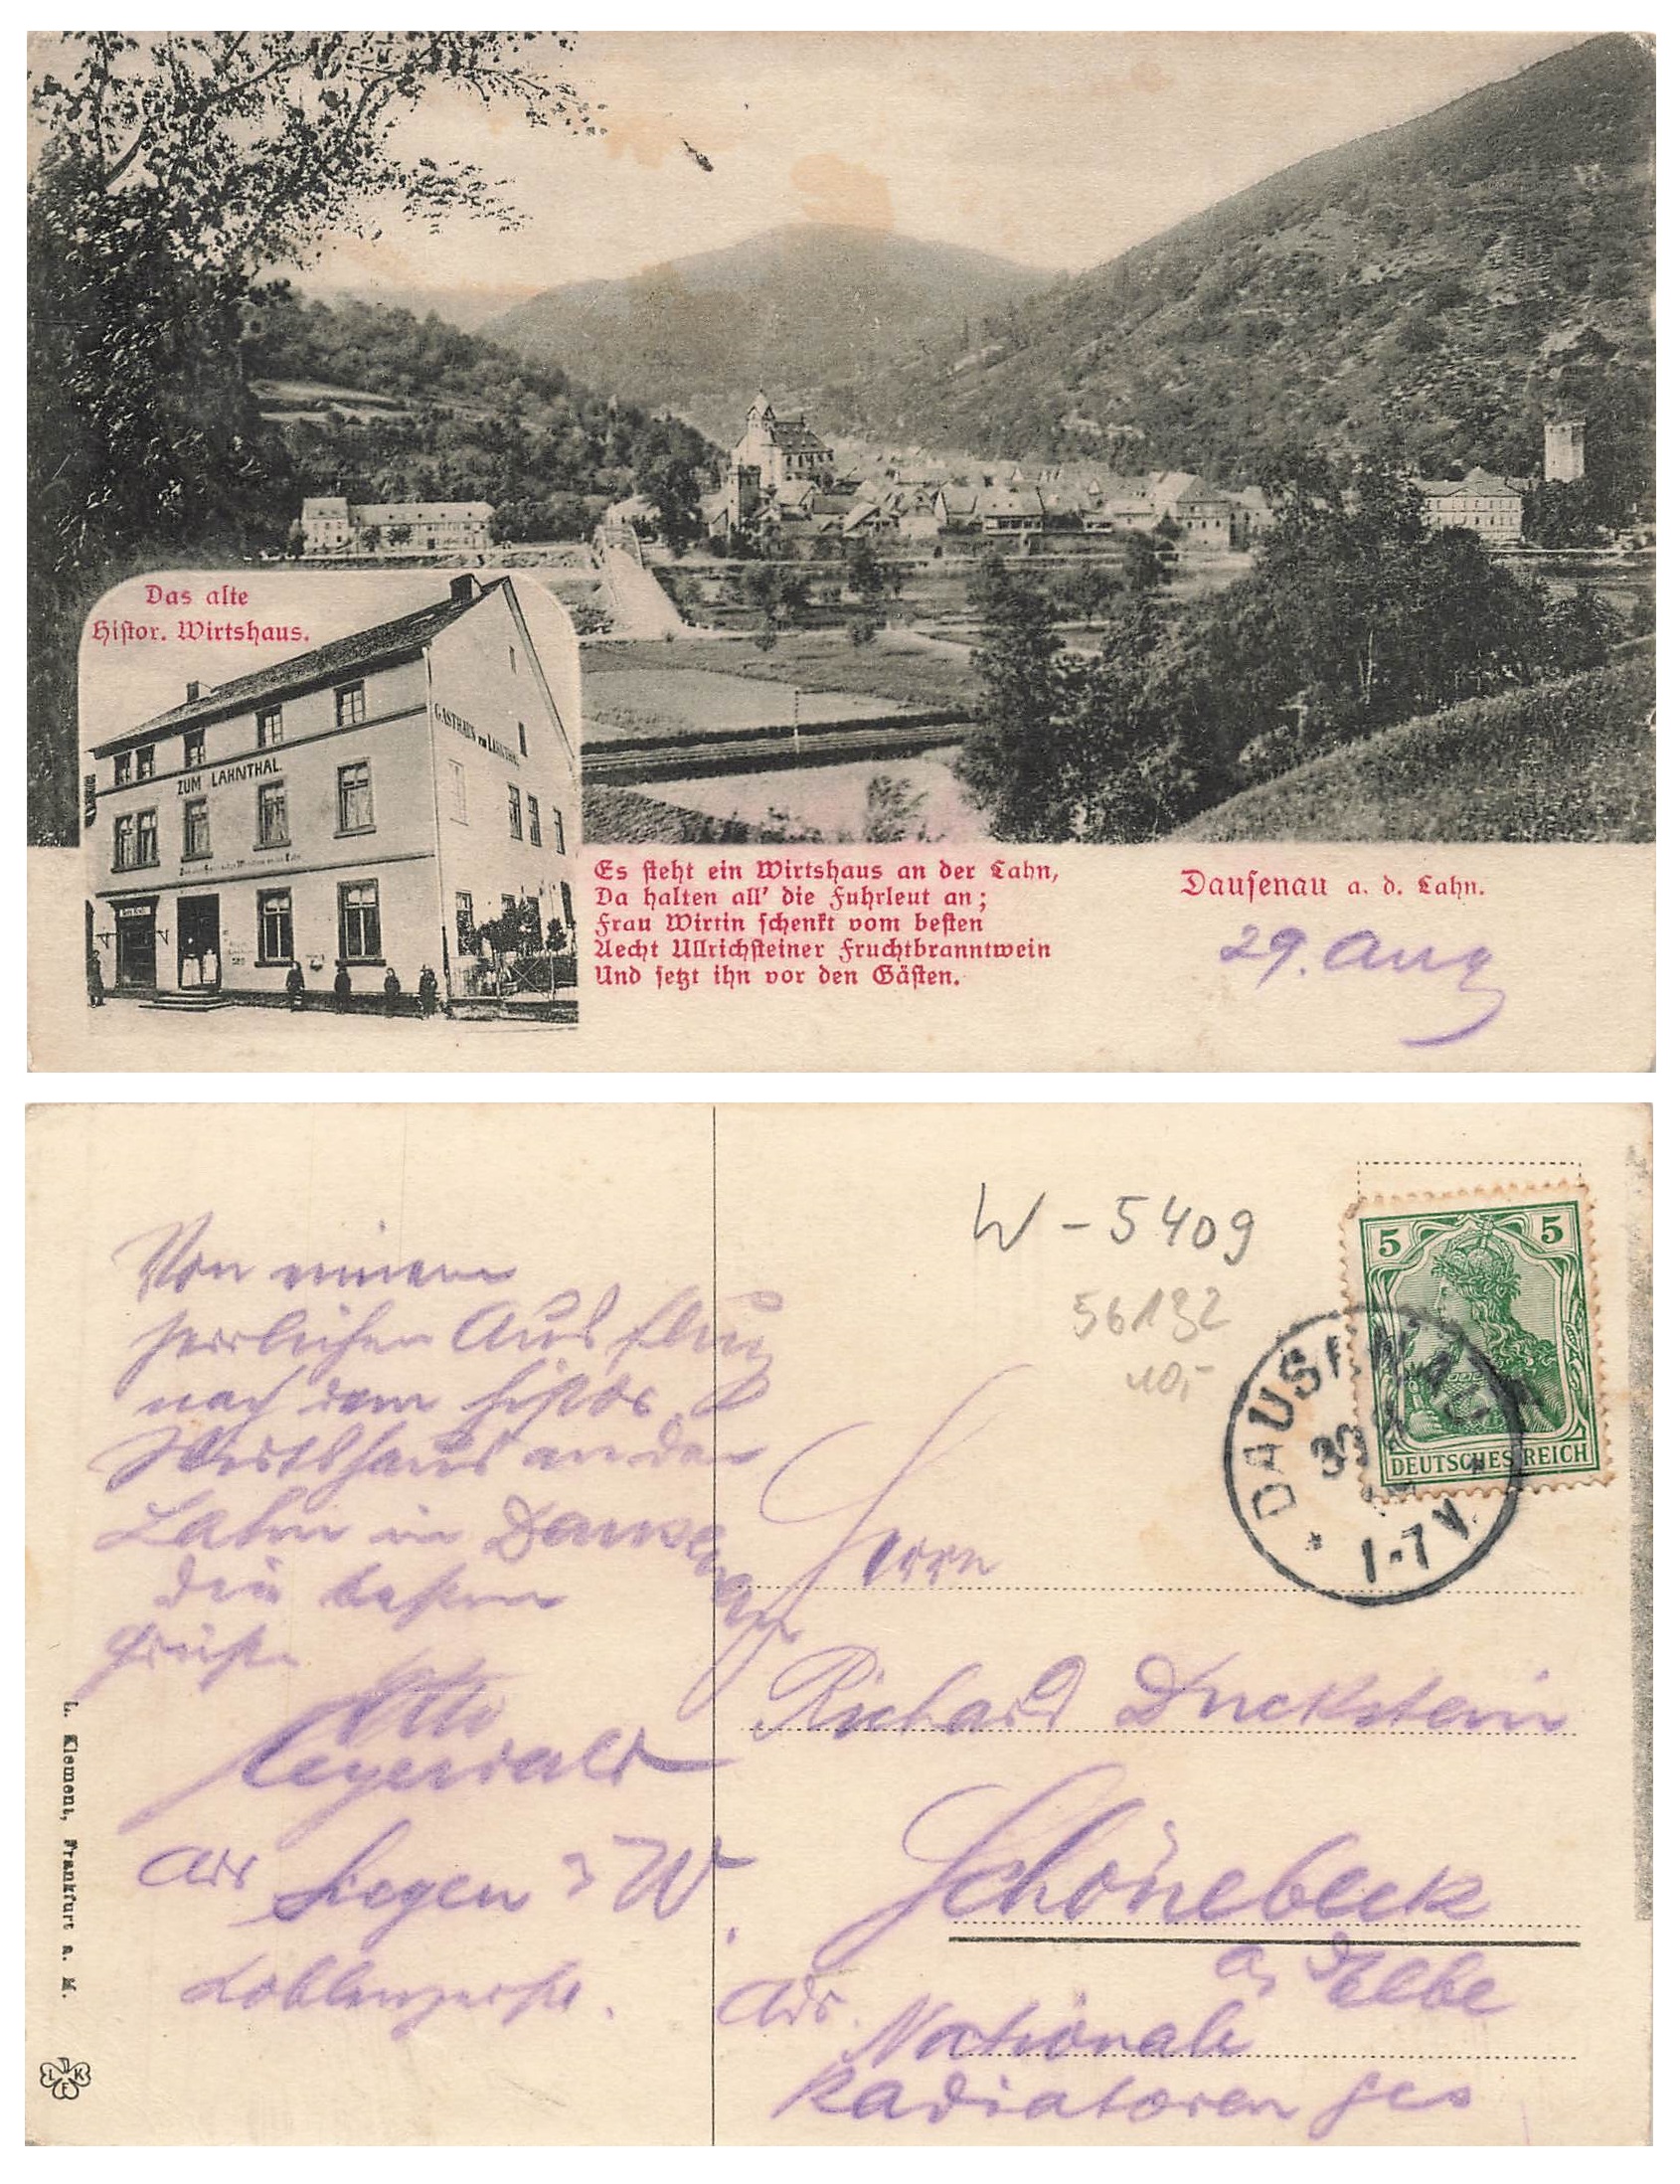 Das alte
Histor. Wirtshaus.
ZUM LAHNTHAL.
GASTHAUS ZUM LAHNTHAL
Es steht ein Wirtshaus an der Lahn,
Da halten all' die Fuhrleut an;
Frau Wirtin schenkt vom besten
Aecht Ullrichsteiner Fruchtbranntwein
Und setzt ihn vor den Gästen.
Dausenau a. d. Lahn.
29. Aug
Von einem
herrlichen Ausflug
nach dem histor.
Wirtshaus an der
Lahn in Dausenau
die besten
Grüße
Otto
aus Siegen i W.
Coblenzerstr.
L. Klement, Frankfurt a. M.
L K F
W-5409
56132
10,-
5 5
DEUTSCHES REICH
DAUSENAU
30
1-7 V.
Herrn
Richard Duckstein
Schönebeck
a d Elbe
Adr.
Nationale
Radiatoren Ges